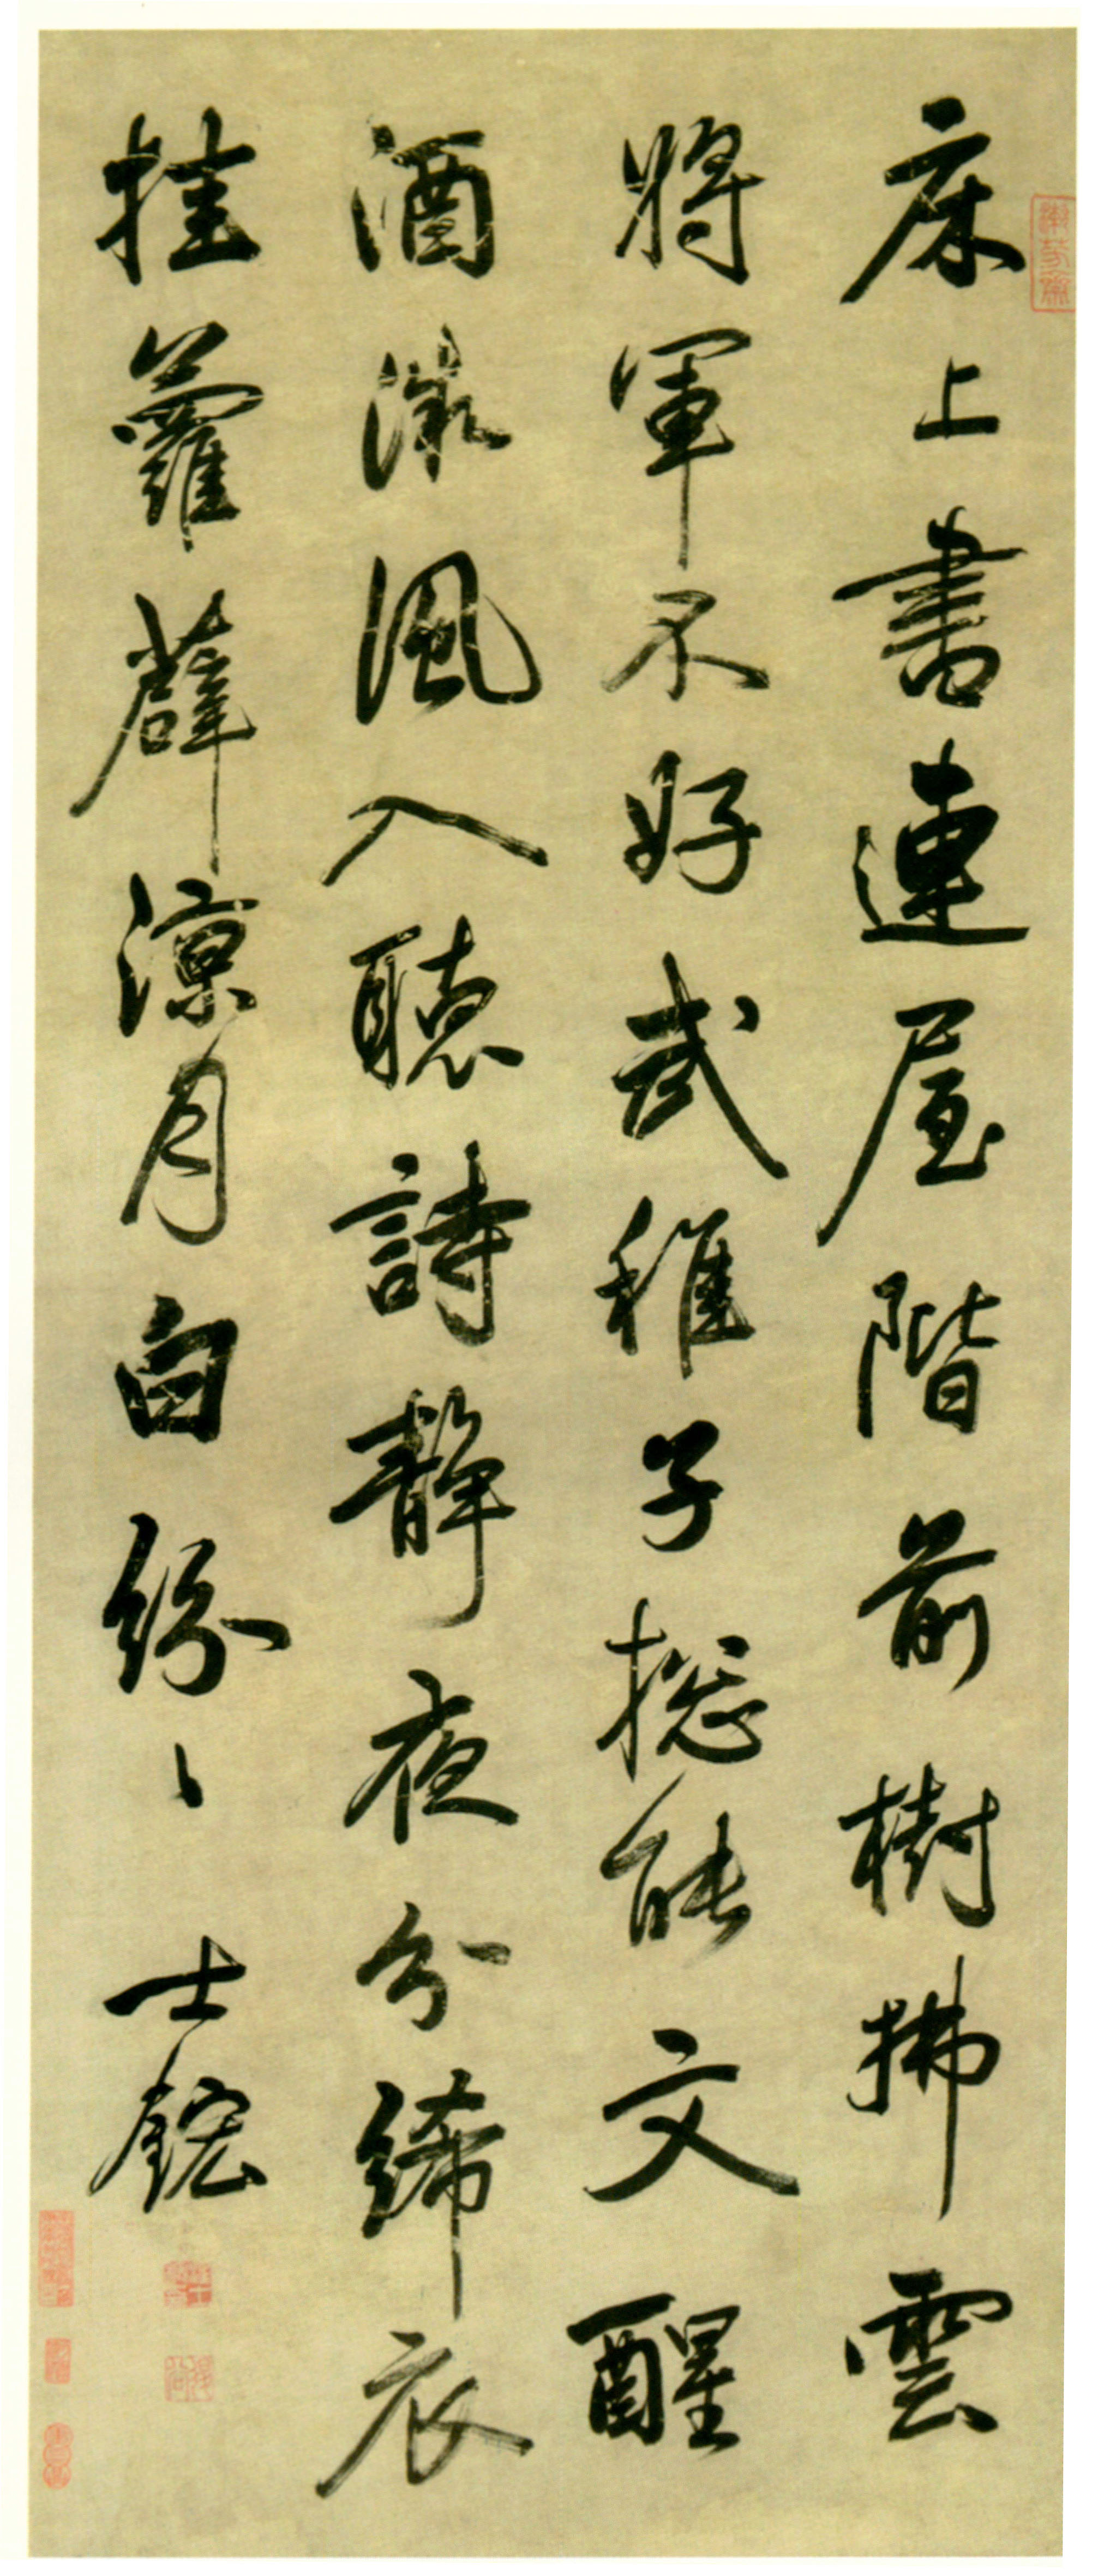 床上書連屋階前樹拂雲
將軍不好武稚子揔能文醒
酒微風入聽詩静夜分絺衣
挂蘿薜涼月白紛〻 士鋐